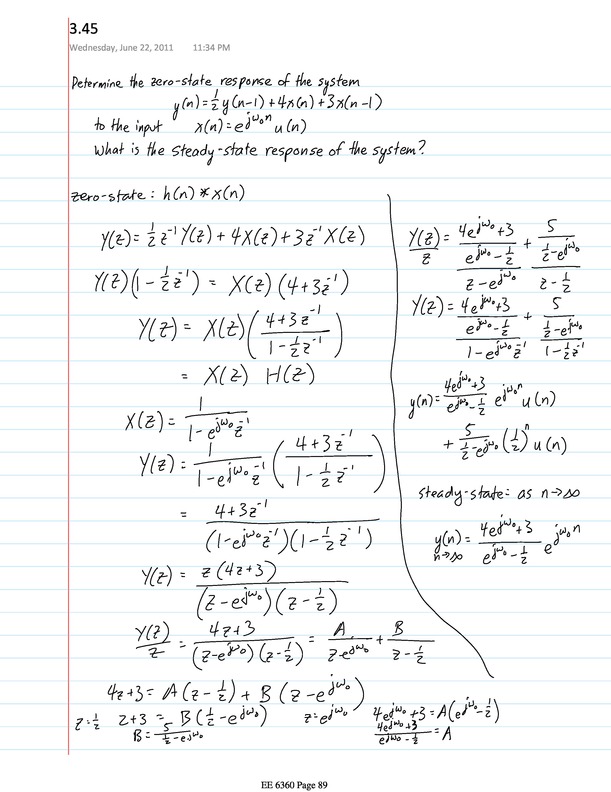 3.45
Wednesday, June 22, 2011 11:34 PM
Determine the zero-state response of the system
y(n) = 1/2 y(n-1) + 4x(n) + 3x(n-1)
to the input x(n) = e^{jω₀n} u(n)
What is the steady-state response of the system?
zero-state: h(n) * x(n)
Y(z) = 1/2 z⁻¹ Y(z) + 4X(z) + 3z⁻¹ X(z)
Y(z)(1 - 1/2 z⁻¹) = X(z)(4 + 3z⁻¹)
Y(z) = X(z) ((4 + 3z⁻¹)/(1 - 1/2 z⁻¹))
= X(z) H(z)
X(z) = 1/(1 - e^{jω₀} z⁻¹)
Y(z) = 1/(1 - e^{jω₀} z⁻¹) ((4 + 3z⁻¹)/(1 - 1/2 z⁻¹))
= (4 + 3z⁻¹)/((1 - e^{jω₀} z⁻¹)(1 - 1/2 z⁻¹))
Y(z) = z(4z + 3)/((z - e^{jω₀})(z - 1/2))
Y(z)/z = (4z + 3)/((z - e^{jω₀})(z - 1/2)) = A/(z - e^{jω₀}) + B/(z - 1/2)
4z + 3 = A(z - 1/2) + B(z - e^{jω₀})
z = 1/2 2 + 3 = B(1/2 - e^{jω₀}) z = e^{jω₀} 4e^{jω₀} + 3 = A(e^{jω₀} - 1/2)
B = 5/(1/2 - e^{jω₀}) (4e^{jω₀} + 3)/(e^{jω₀} - 1/2) = A
Y(z)/z = ((4e^{jω₀} + 3)/(e^{jω₀} - 1/2))/(z - e^{jω₀}) + (5/(1/2 - e^{jω₀}))/(z - 1/2)
Y(z) = ((4e^{jω₀} + 3)/(e^{jω₀} - 1/2))/(1 - e^{jω₀} z⁻¹) + (5/(1/2 - e^{jω₀}))/(1 - 1/2 z⁻¹)
y(n) = (4e^{jω₀} + 3)/(e^{jω₀} - 1/2) e^{jω₀n} u(n)
+ 5/(1/2 - e^{jω₀}) (1/2)ⁿ u(n)
steady-state: as n → ∞
y(n) = (4e^{jω₀} + 3)/(e^{jω₀} - 1/2) e^{jω₀n}
n → ∞
EE 6360 Page 89